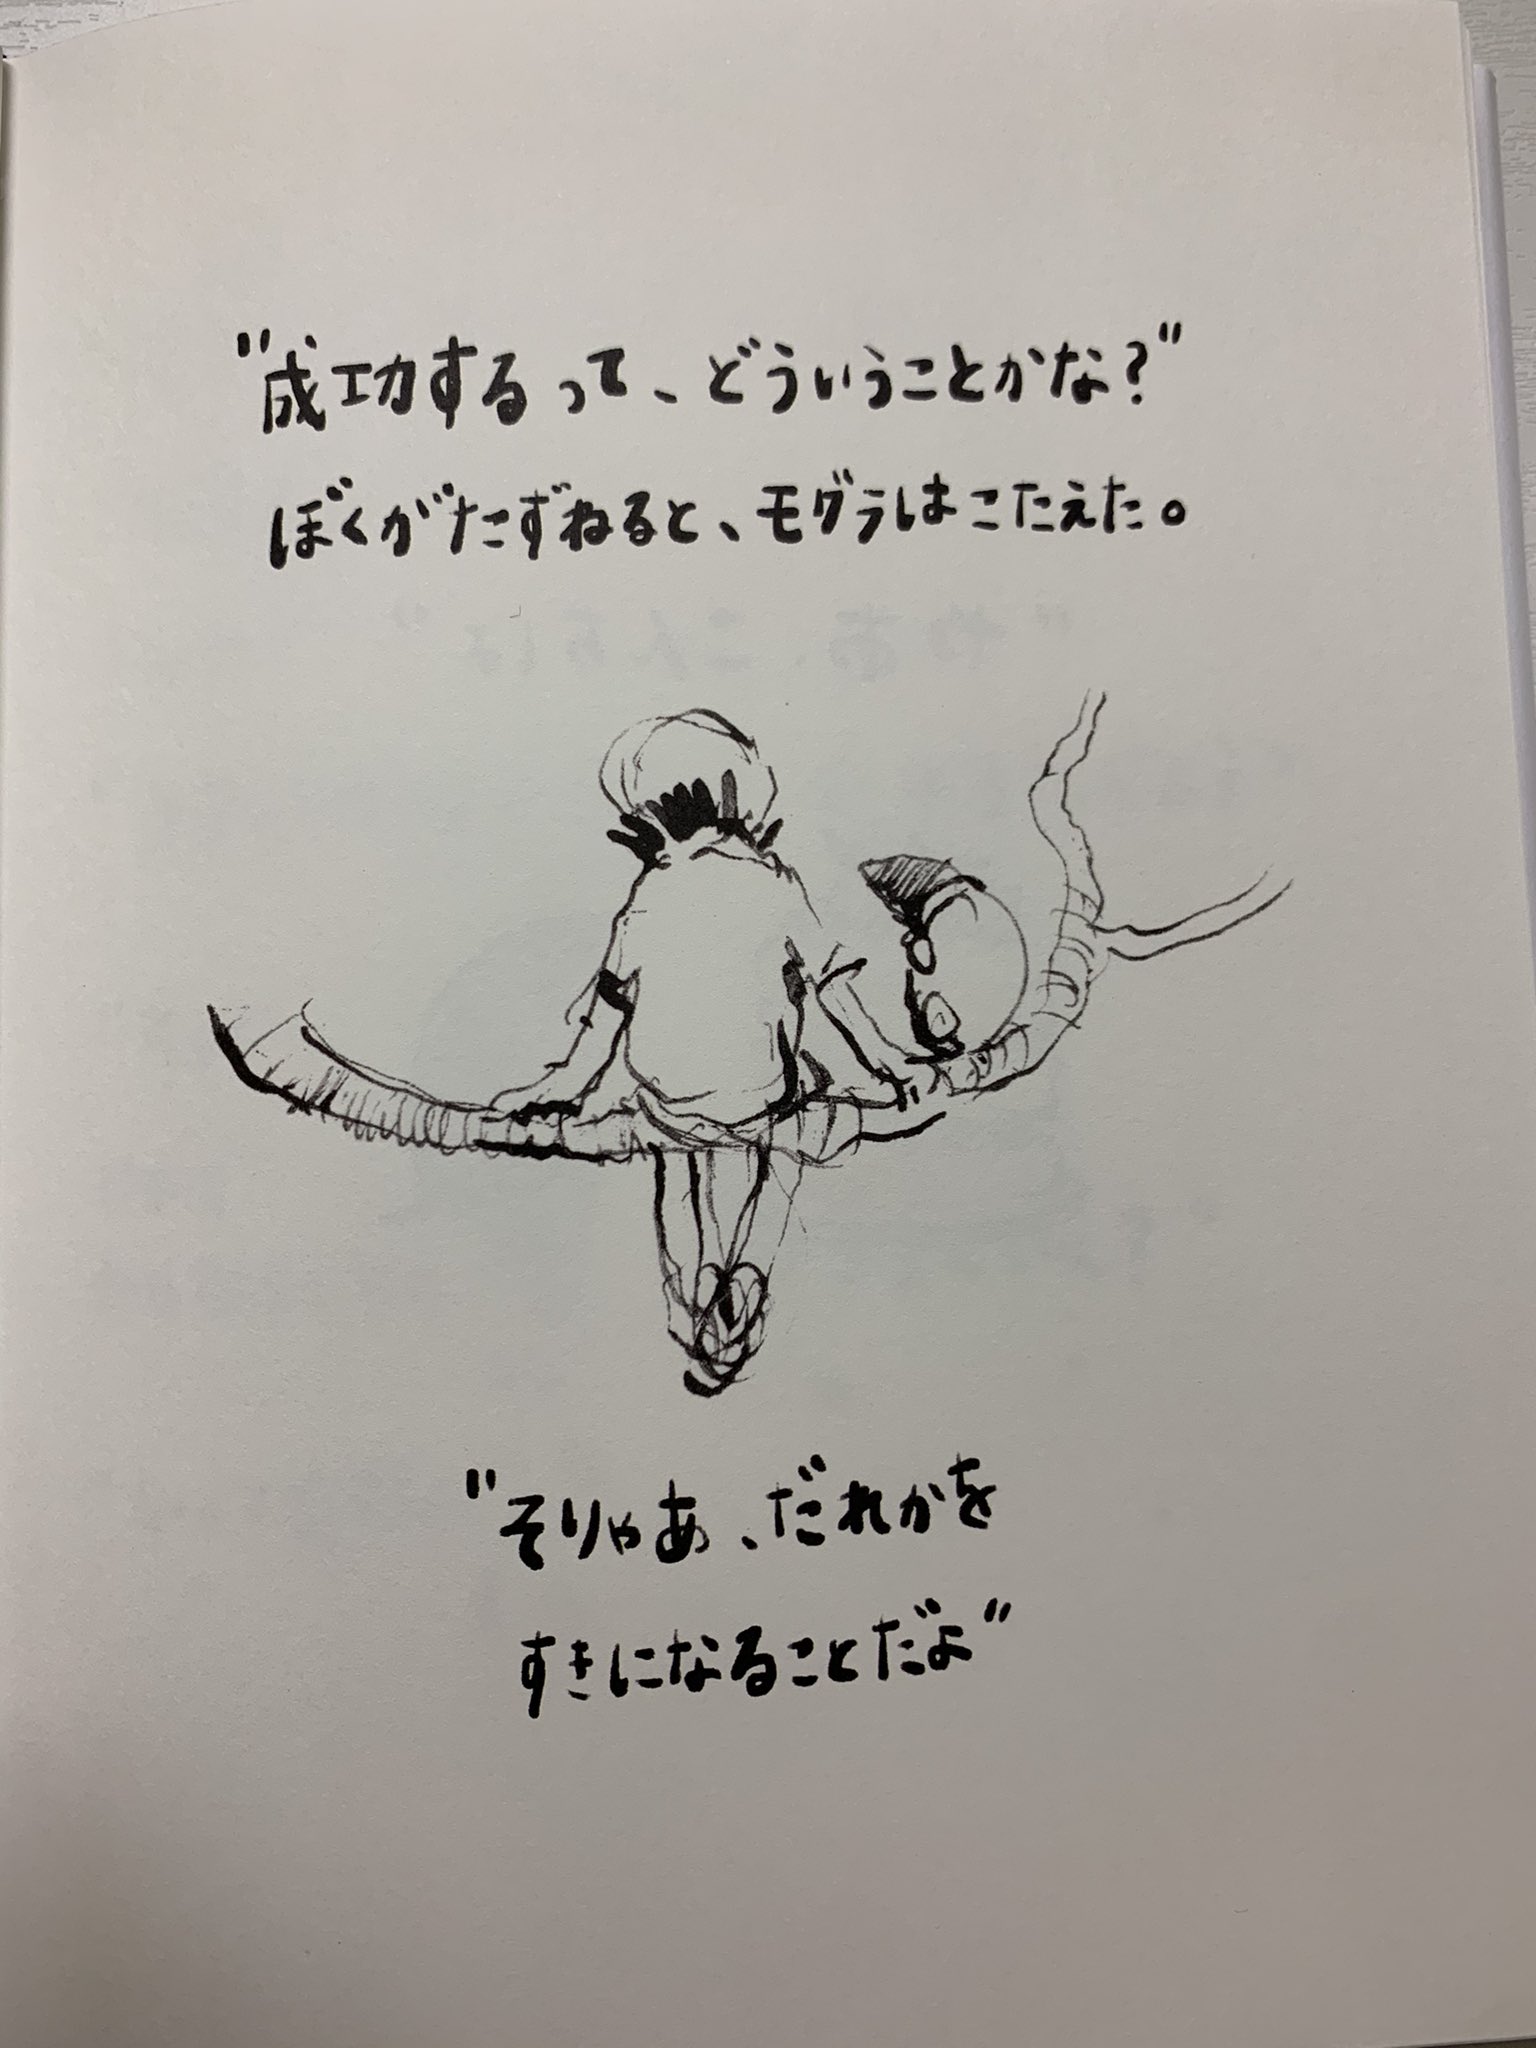 "成功するって、どういうことかな?"
ぼくがたずねると、モグラはこたえた。
"そりゃあ、だれかを
すきになることだよ"